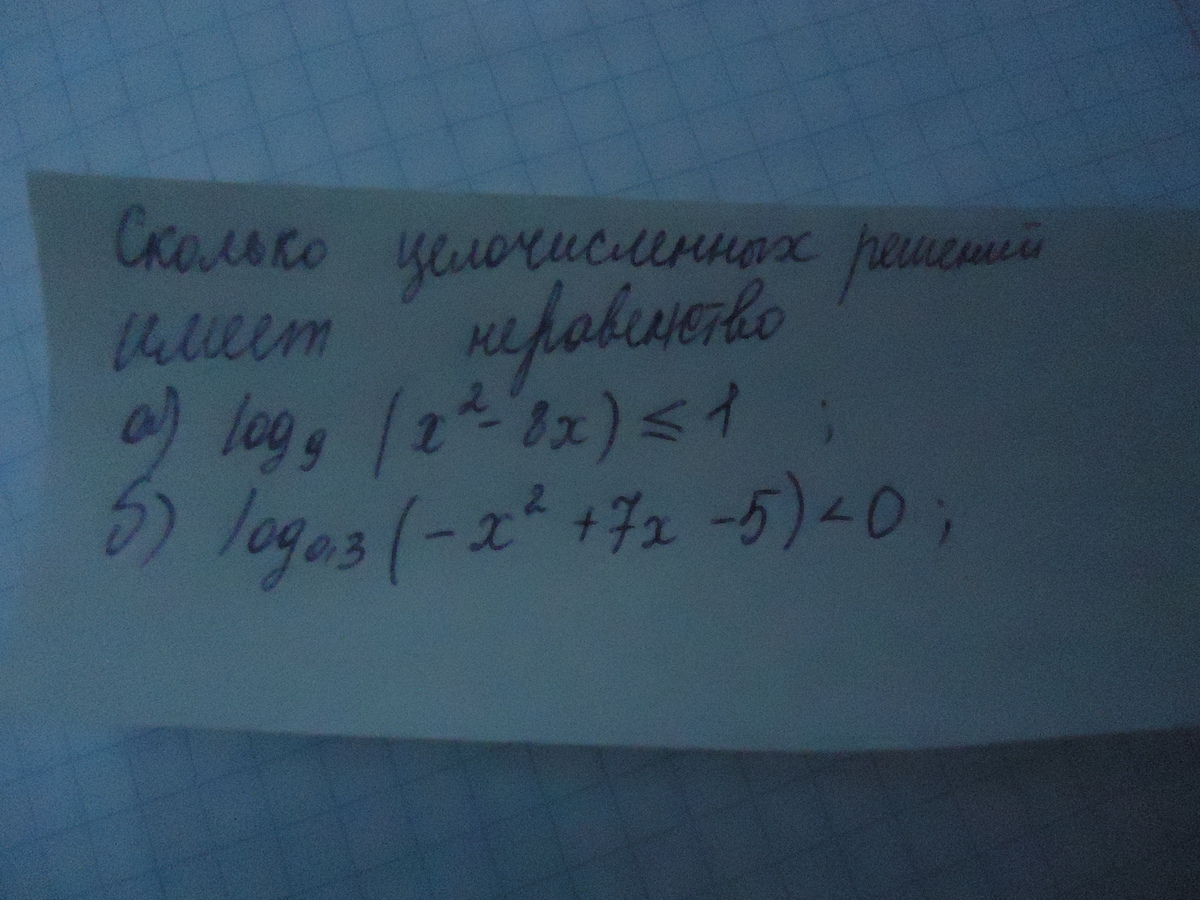 Сколько целочисленных решений
имеет неравенство
а) log₉ (x² - 8x) ≤ 1 ;
б) log₀,₃ (-x² +7x -5) < 0 ;